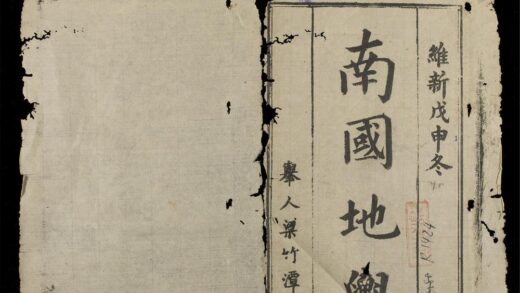 維新戊申冬
南國地輿
舉人梁竹潭